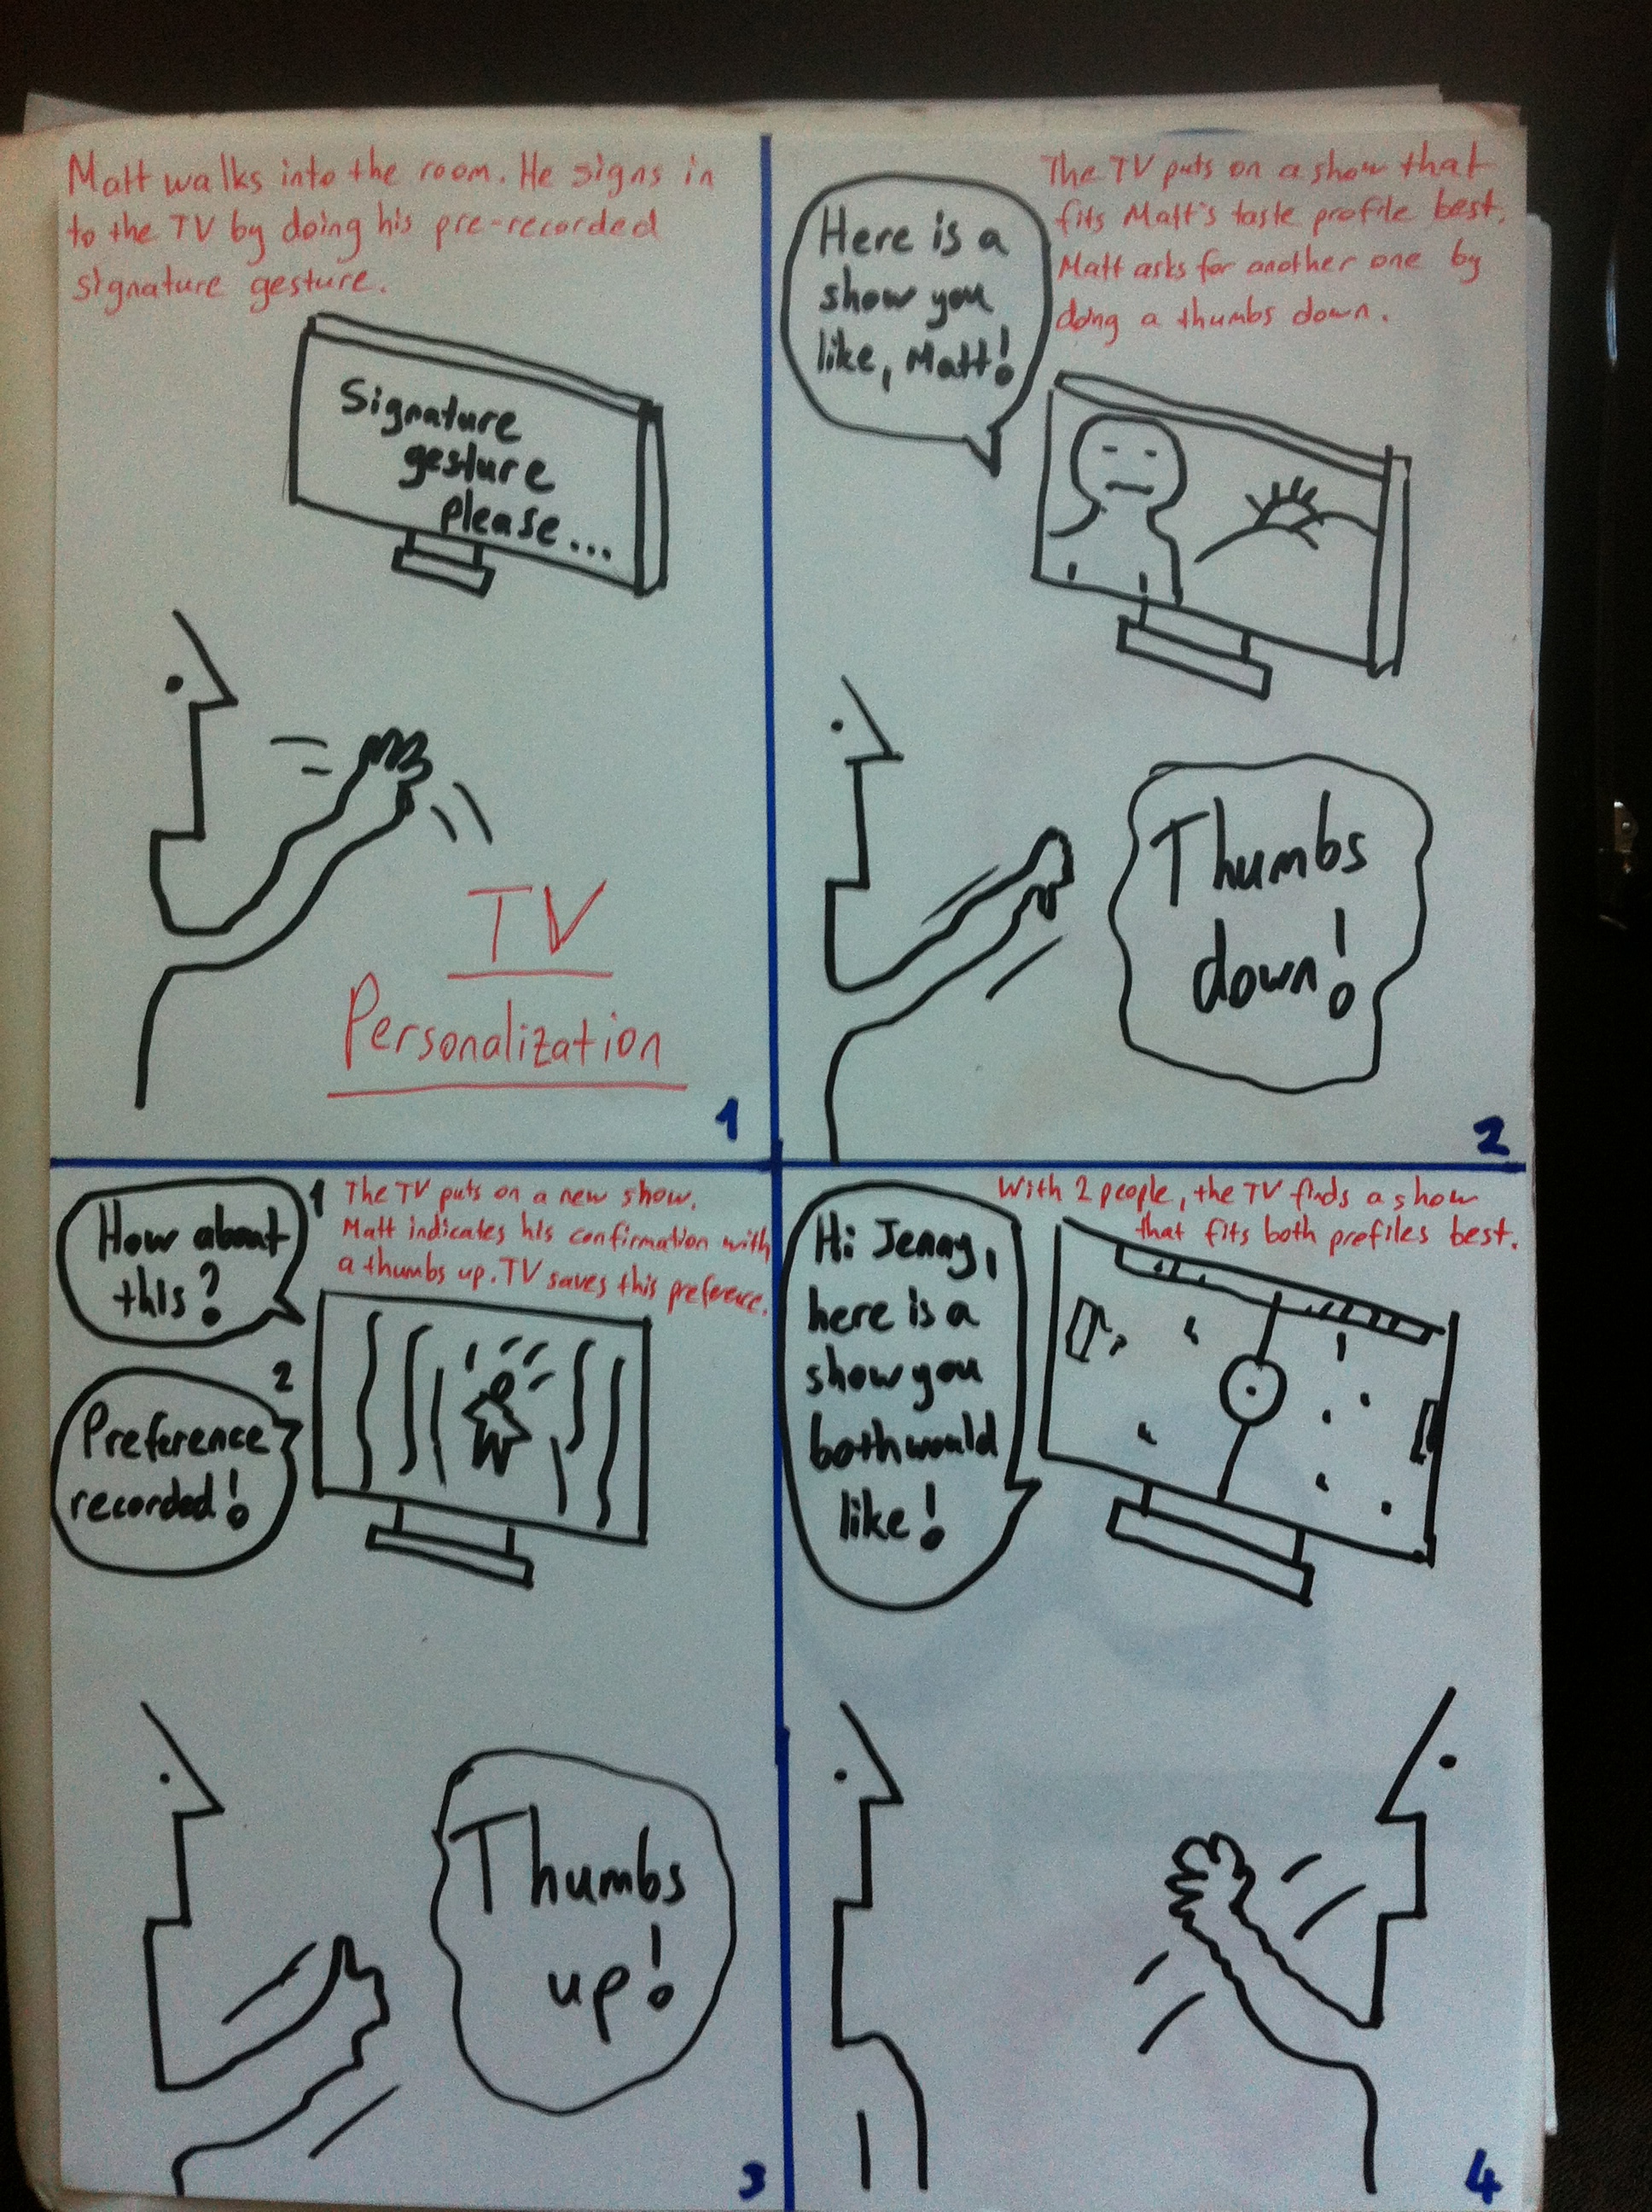 Matt walks into the room. He signs in
to the TV by doing his pre-recorded
signature gesture.
Signature
gesture
please...
TV
Personalization
1
The TV puts on a show that
fits Matt's taste profile best.
Matt asks for another one by
doing a thumbs down.
Here is a
show you
like, Matt!
Thumbs
down!
2
1 The TV puts on a new show.
Matt indicates his confirmation with
a thumbs up. TV saves this preference.
How about
this?
2
Preference
recorded!
Thumbs
up!
3
With 2 people, the TV finds a show
that fits both prefiles best.
Hi Jenny,
here is a
show you
both would
like!
4